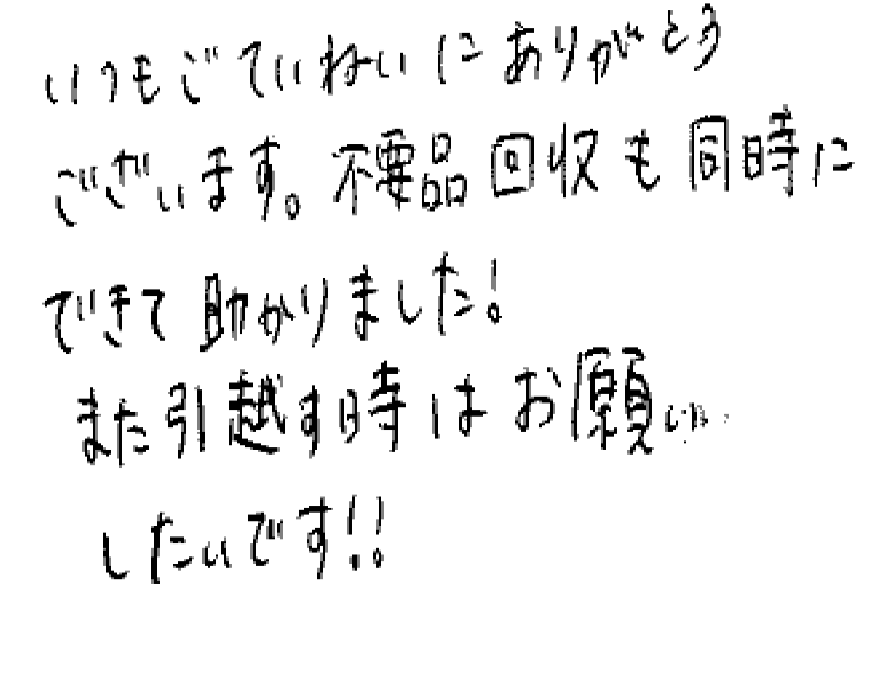 いつもごていねいにありがとう
ございます。不要品回収も同時に
できて助かりました!
また引越す時はお願い
したいです!!